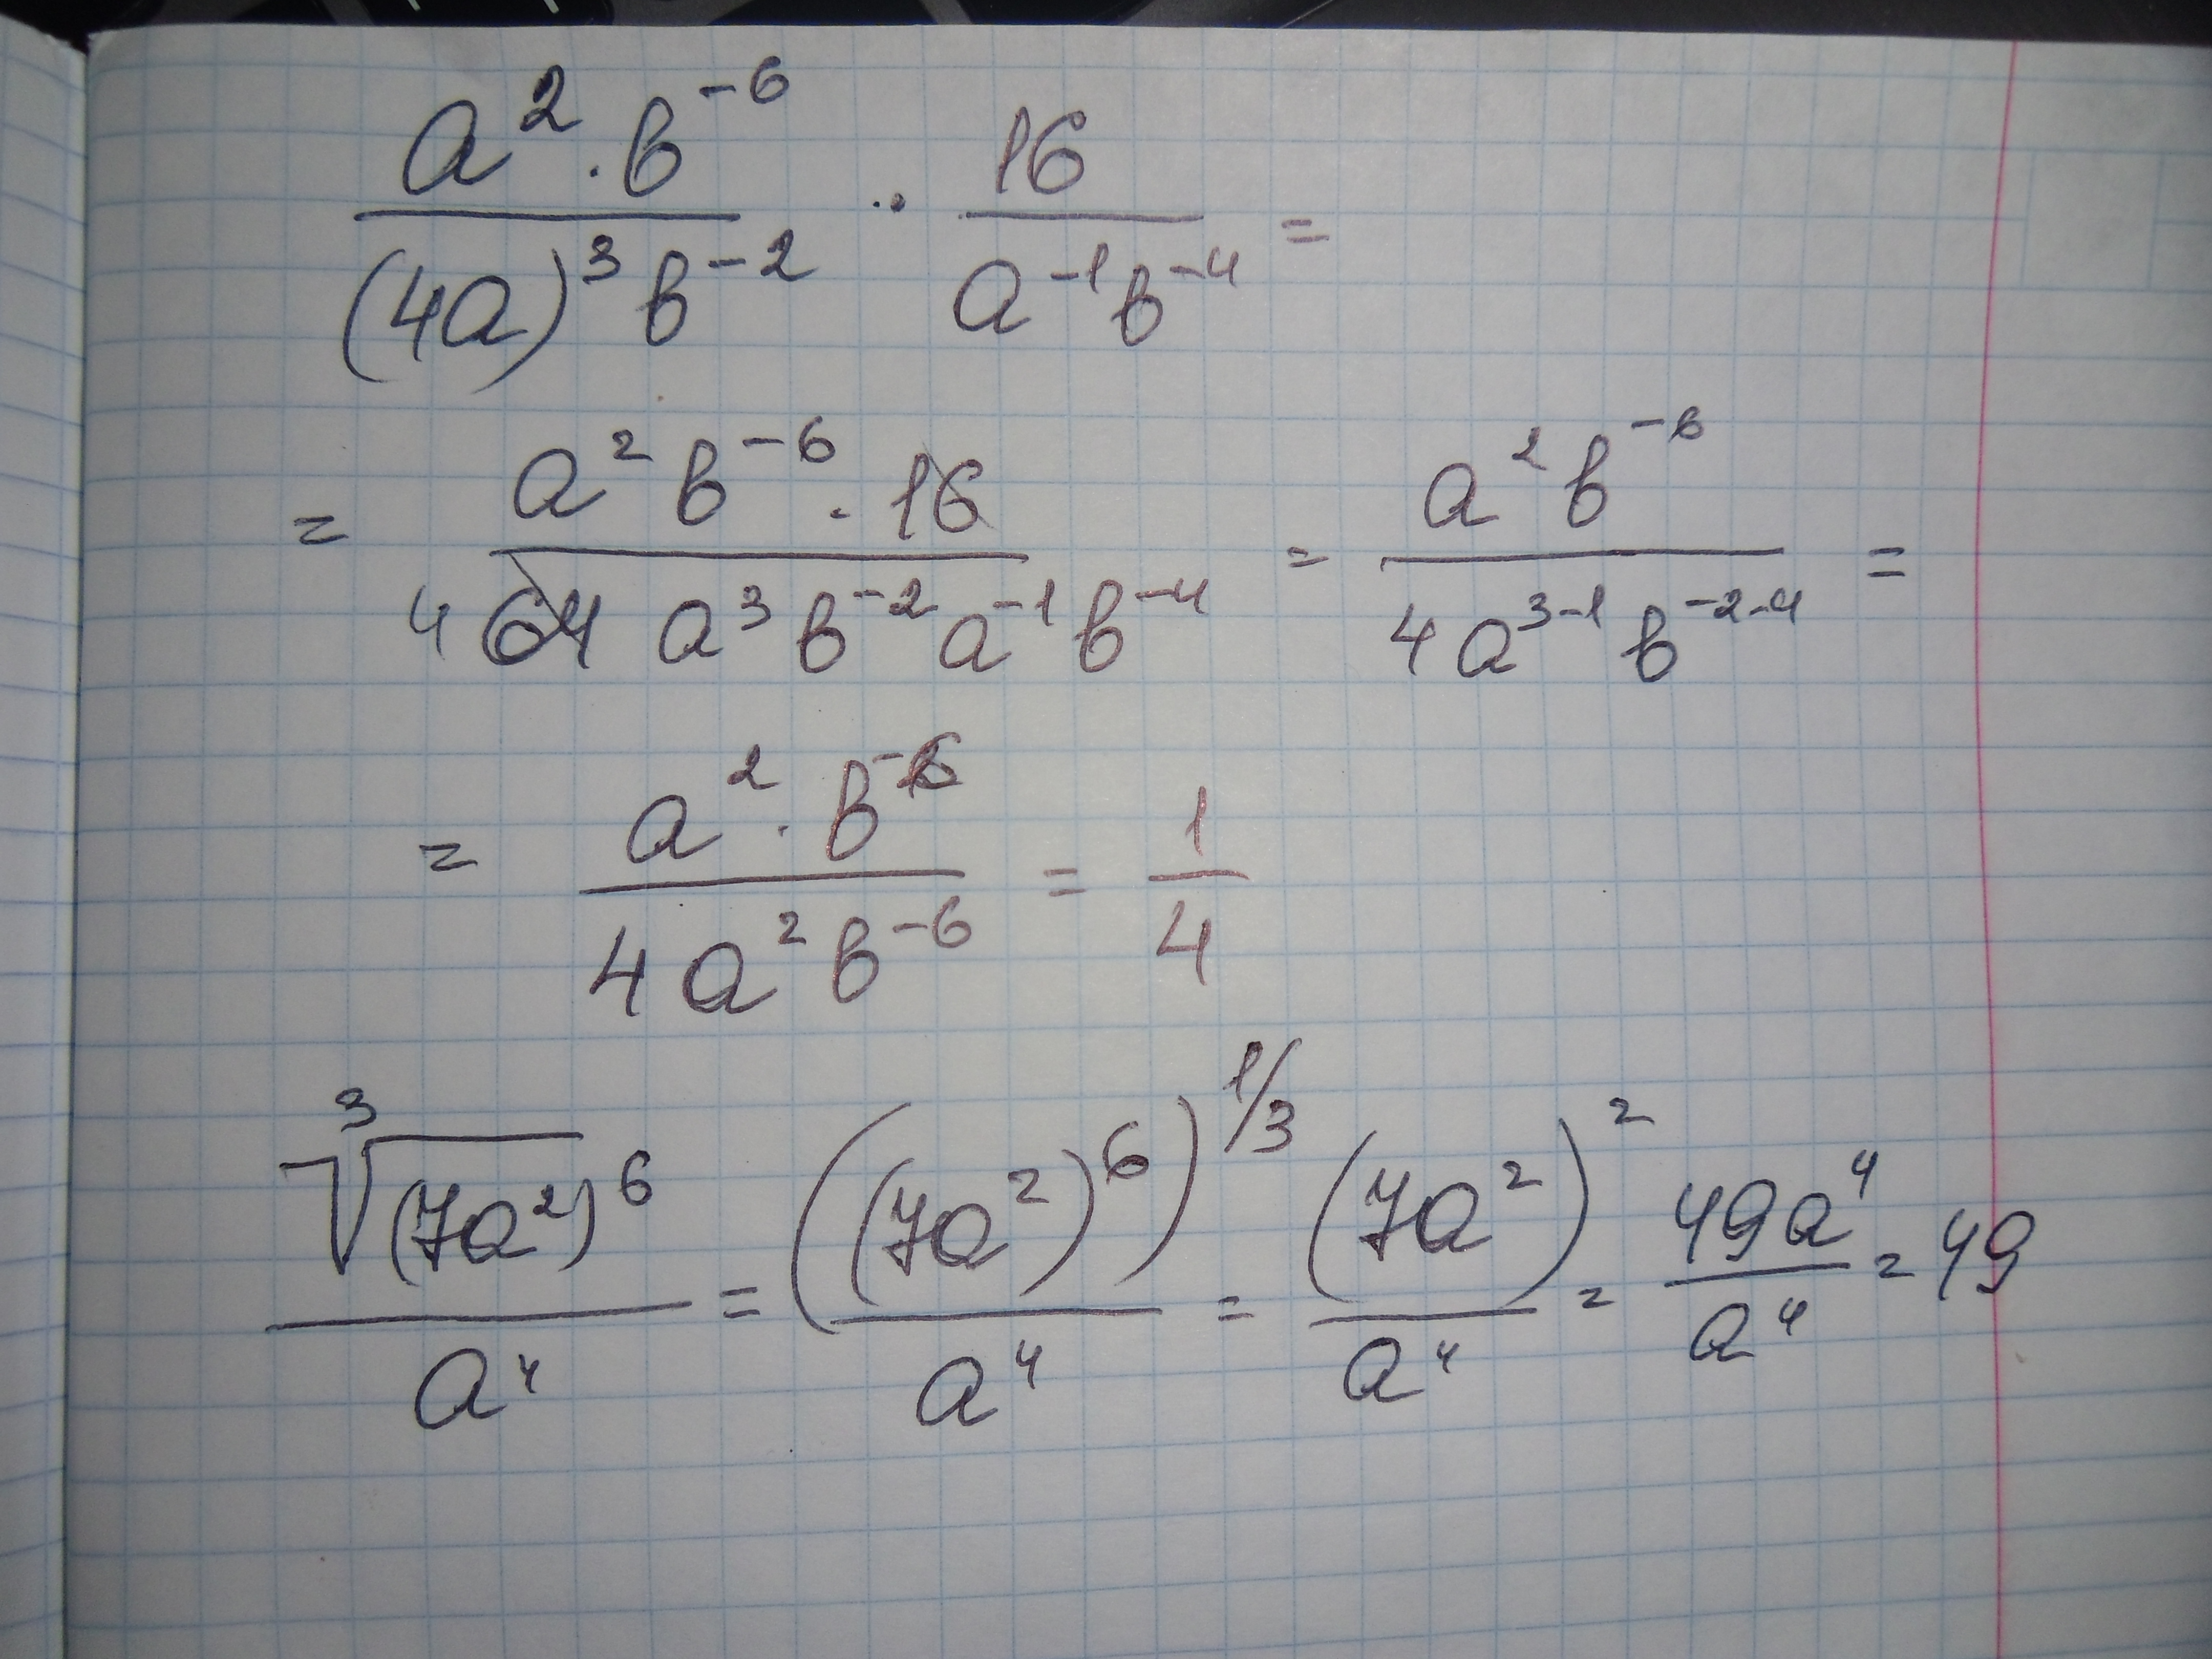 a² · b⁻⁶ / (4a)³ b⁻² · 16 / a⁻¹ b⁻⁴ =
= a² b⁻⁶ · 16 / 4 64 a³ b⁻² a⁻¹ b⁻⁴ = a² b⁻⁶ / 4a³⁻¹ b⁻²⁻⁴ =
= a² · b⁻⁶ / 4a² b⁻⁶ = 1 / 4
³√(7a²)⁶ / a⁴ = ((7a²)⁶)^1/3 / a⁴ = (7a²)² / a⁴ = 49a⁴ / a⁴ = 49